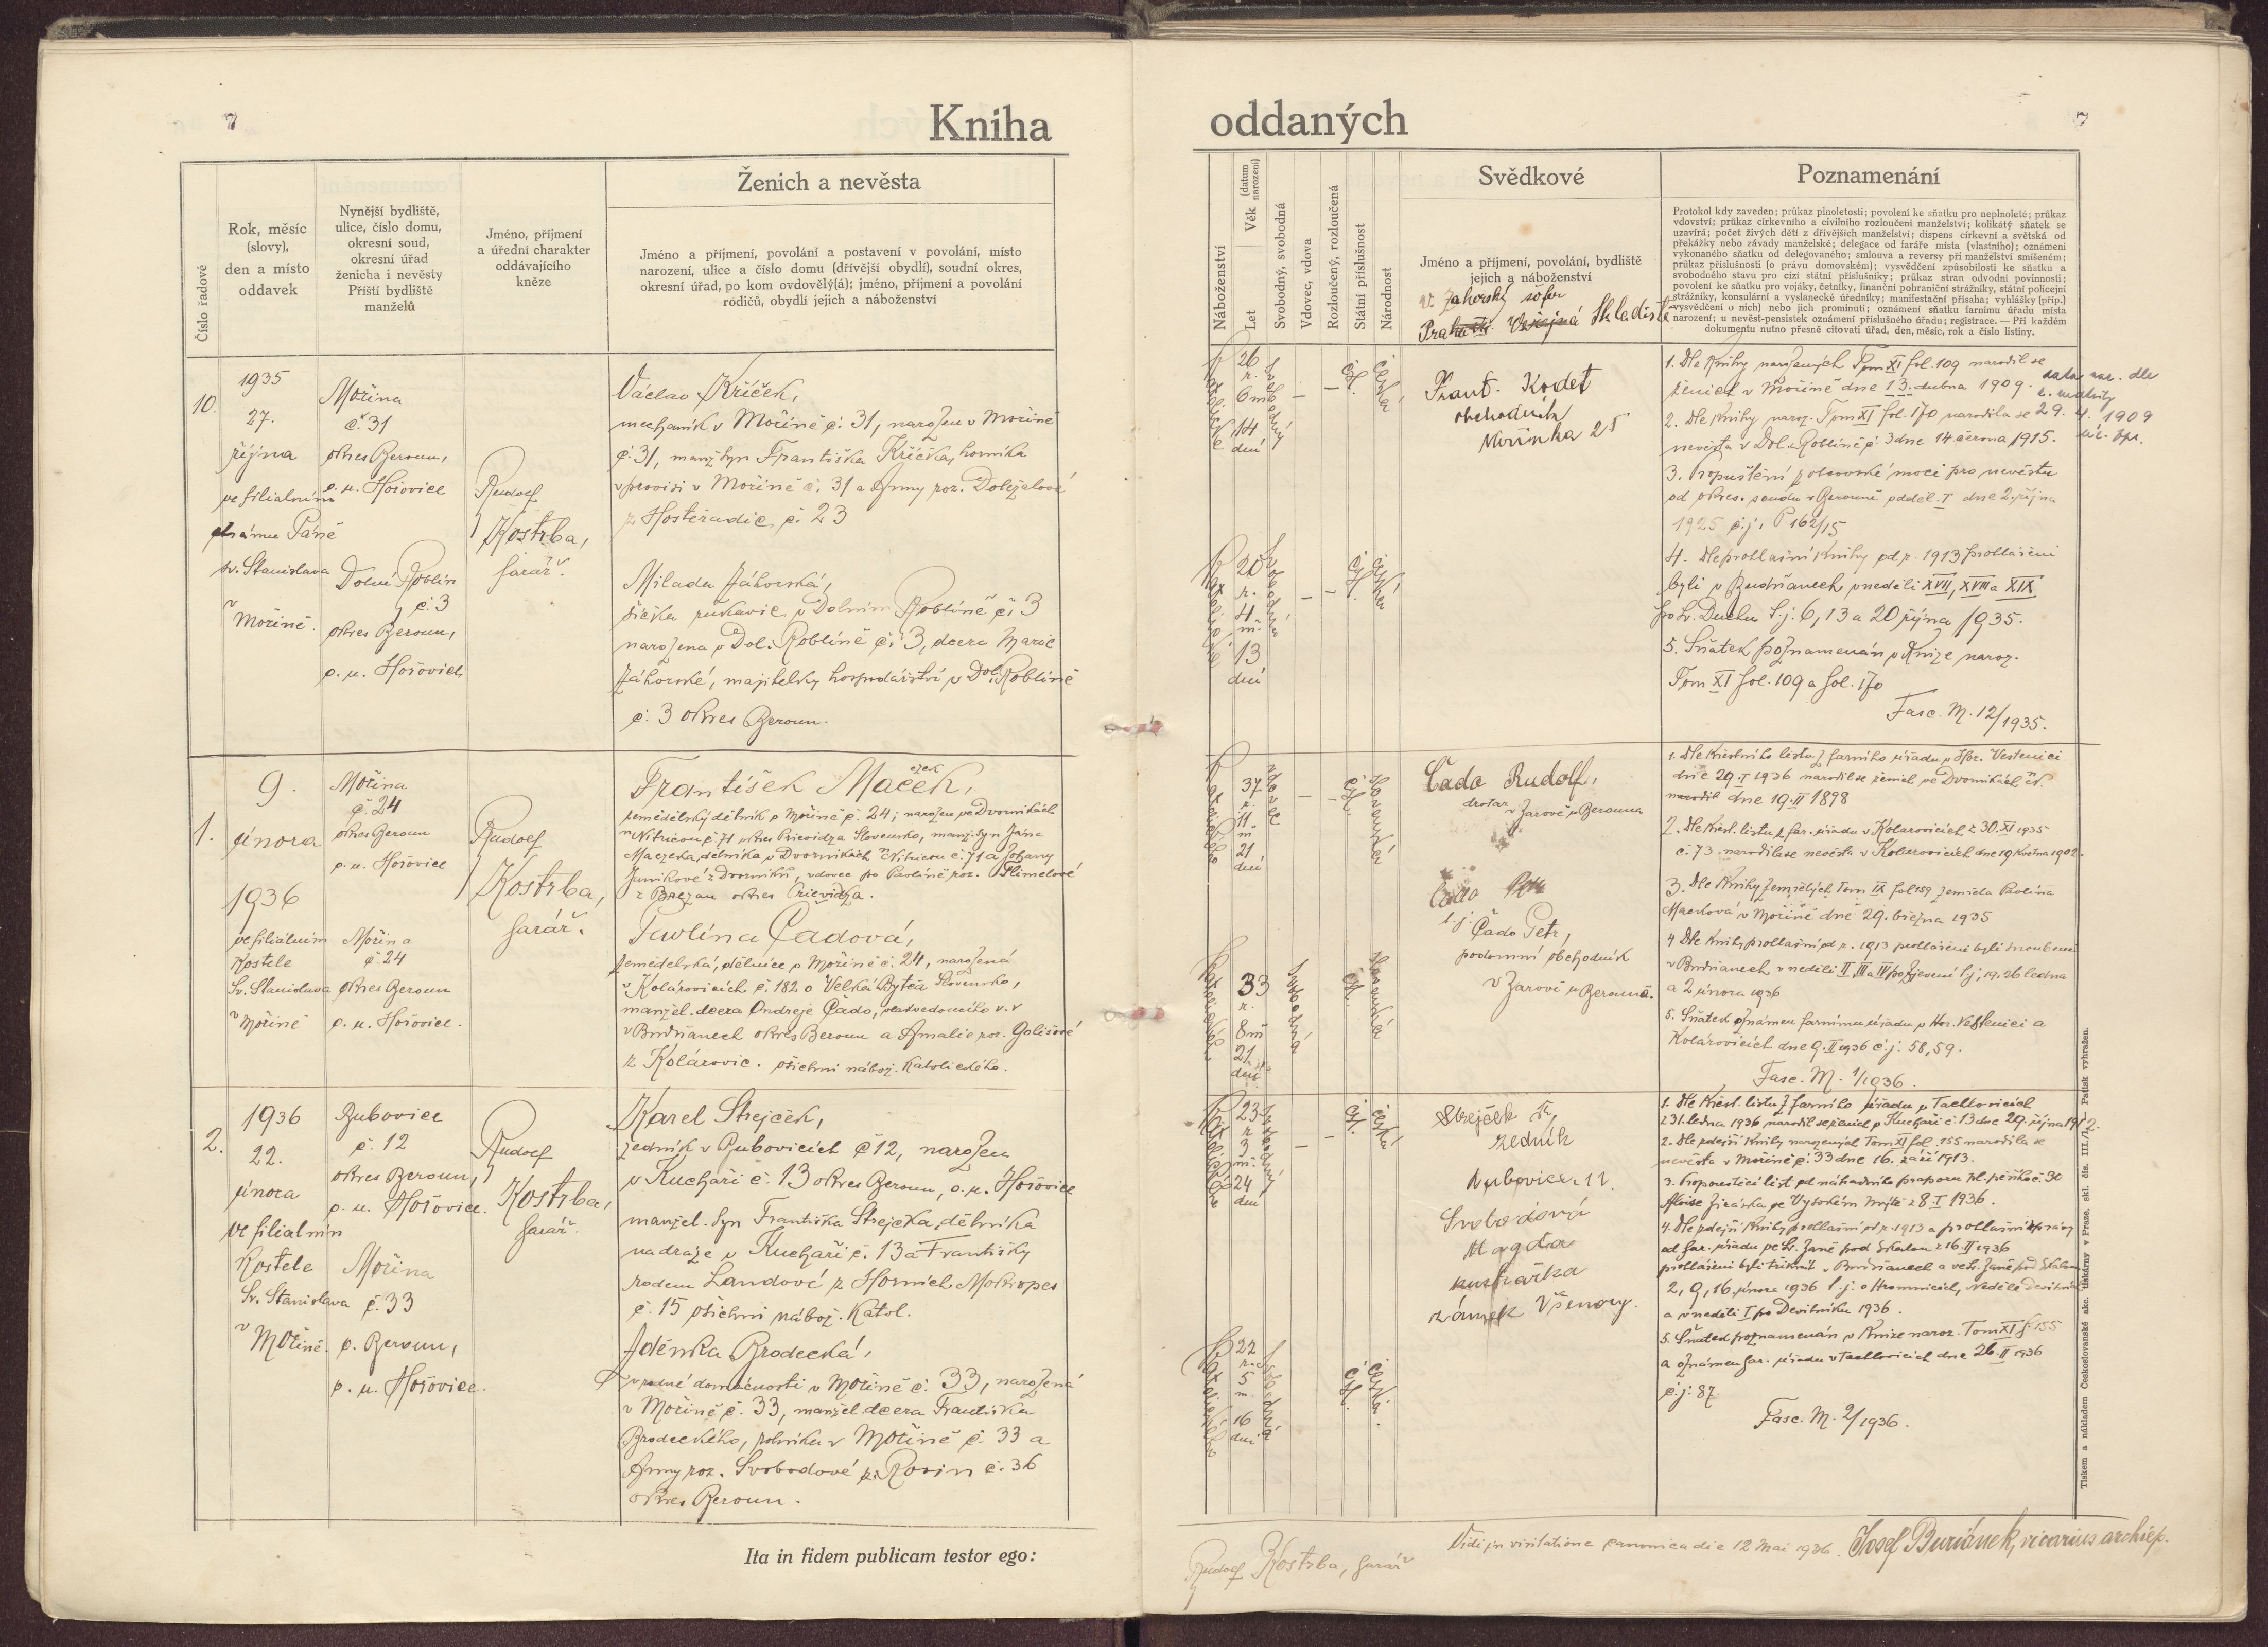 7
Kniha
Ženich a nevěsta
Číslo řadové
Rok, měsíc
(slovy),
den a místo
oddavek
Nynější bydliště,
ulice, číslo domu,
okresní soud,
okresní úřad
ženicha i nevěsty
Příští bydliště
manželů
Jméno, příjmení
a úřední charakter
oddávajícího
kněze
Jméno a příjmení, povolání a postavení v povolání, místo
narození, ulice a číslo domu (dřívější obydlí), soudní okres,
okresní úřad, po kom ovdověly(á); jméno, příjmení a povolání
rodičů, obydlí jejich a náboženství
10.
1935
27.
října
ve filialním
chrámu Páně
sv. Stanislava
v Mořině.
Mořina
č. 31
okres Beroun,
o. u. Hořovice
Dolní Roblín
č. 3
okres Beroun,
o. u. Hořovice
Rudolf
Kostrba,
farář.
Václav Kříček,
mechanik v Mořině č. 31, narozen v Mořině
č. 31, manž. syn Františka Kříčka, horníka
v provisi v Mořině č. 31 a Anny roz. Doležalové
z Hostěradic č. 23
Milada Záhorská,
šička rukavic v Dolním Roblíně č. 3
narozena v Dol. Roblíně č. 3, dcera Marie
Záhorské, majitelky hospodářství v Dol. Roblíně
č. 3 okres Beroun.
1.
9.
února
1936
ve filiálním
kostele
Sv. Stanislava
v Mořině
Mořina
č. 24
okres Beroun
o. u. Hořovice
Mořina
č. 24
okres Beroun
o. u. Hořovice.
Rudolf
Kostrba,
farář.
František Maček,
zemědělský dělník v Mořině č. 24, narozen ve Dvorníkách
n Nitricou č. 71 okres Prievidza Slovensko, manž. syn Jána
Maczeka, dělníka v Dvorníkách n Nitricou č. 71 a Johany
z Dvorníků, vdovec po Pavlíně roz.
z Brezan okres Prievidza.
Pavlína Čadová,
zemědělská dělnice v Mořině č. 24, narozená
v Kolárovicích č. 182 o Velká Byteá Slovensko,
manžel. dcera Ondreje Čado,
v Budňanech okres Beroun a Amalie roz.
z Kolárovic. všichni nábož. katolického.
2.
1936
22.
února
ve filialním
kostele
Sv. Stanislava
v Mořině.
Bubovice
č. 12
okres Beroun,
o. u. Hořovice.
Mořina
č. 33
o. Beroun,
o. u. Hořovice.
Rudolf
Kostrba,
farář.
Karel Strejček,
zedník v Bubovicích č 12, narozen
v Kuchaři č. 13 okres Beroun, o. u. Hořovice
manžel. syn Františka Strejčka, dělníka
na dráze v Kuchaři č. 13 a Františky
rodem Landové z Horních Mokropes
č. 15 všichni nábož. katol.
Zděnka Brodecká,
v rodné domácnosti v Mořině č. 33, narozená
v Mořině č. 33, manžel. dcera Františka
Brodeckého, rolníka v Mořině č. 33 a
Anny roz. Svobodové z Rovin č. 36
okres Beroun.
Ita in fidem publicam testor ego:
oddaných
7
Náboženství
Let Věk (datum narození)
Svobodný, svobodná
Vdovec, vdova
Rozloučený, rozloučená
Státní příslušnost
Národnost
Svědkové
Jméno a příjmení, povolání, bydliště
jejich a náboženství
Poznamenání
Protokol kdy zaveden; průkaz plnoletosti; povolení ke sňatku pro neplnoleté; průkaz
vdovství; průkaz církevního a civilního rozloučení manželství; kolikátý sňatek se
uzavírá; počet živých dětí z dřívějších manželství; dispens církevní a světská od
překážky nebo závady manželské; delegace od faráře místa (vlastního); oznámení
vykonaného sňatku od delegovaného; smlouva a reversy při manželství smíšeném;
průkaz příslušnosti (o právu domovském); vysvědčení způsobilosti ke sňatku a
svobodného stavu pro cizí státní příslušníky; průkaz stran odvodní povinnosti;
povolení ke sňatku pro vojáky, četníky, finanční pohraniční strážníky, státní policejní
strážníky, konsulární a vyslanecké úředníky; manifestační přísaha; vyhlášky (příp.)
vysvědčení o nich) nebo jich prominutí; oznámení sňatku farnímu úřadu místa
narození; u nevěst-pensistek oznámení příslušného úřadu; registrace. — Při každém
dokumentu nutno přesně citovati úřad, den, měsíc, rok a číslo listiny.
V. Zahorský šofer
Skladiště
Frant. Kodet
obchodník
Mořinka 25
Katolické
26
r.
6 m
14
dní
svobodný
čsl.
česká
Katolické
20
r.
4
m.
13
dní
svobodná
čsl.
česká
1. Dle knihy narozených Tom. XI fol. 109 narodil se
ženich v Mořině dne 13. dubna 1909.
2. Dle knihy naroz. Tom XI fol. 170 narodila se
nevěsta v Dol. Roblíně č. 3 dne 14. června 1915.
datum nar. dle
29. 4. 1909
3. Propuštění z otcovské moci pro nevěstu
od okres. soudu v Berouně odděl. I dne 2. října
1925 č. j. P 162/15
4. Dle prohlašní knihy od r. 1913 prohlášeni
byli v Budňanech v neděli XVII, XVIII a XIX
po sv. Duchu t. j. 6, 13 a 20 října 1935.
5. Sňatek poznamenán v knize naroz.
Tom XI fol. 109 a fol. 170
Fasc. M. 12/1935.
37
r.
11
m
21
dní
vdovec
čsl.
slovenská
Čado Rudolf,
drotar v Zarové u Berouna
Čado
t. j.
Čado Petr,
podomní obchodník
v Zarově u Berouna.
33
r.
8 m
21
dní
svobodná
čsl.
slovenská
1. Dle křestního listu z farního úřadu v Hor. Vestenici
dne 29. I 1936 narodil se ženich ve Dvorníkách n N.
dne 19. II 1898
2. Dle křest. listu z far. úřadu v Kolárovicích z 30. XI 1935
č. 73 narodila se nevěsta v Kolárovicích dne 19 května 1902.
3. Dle knihy zemřelých Tom IX fol 159 zemřela Pavlína
Mačková v Mořině dne 29. března 1935
4 Dle knihy prohlašní od r. 1913 prohlášeni byli snoubenci
v Budňanech v neděli II, III a IV po Zjevení t. j. 19. 26 ledna
a 2 února 1936
5. Sňatek oznámen farnímu úřadu v Hor. Vestenici a
Kolárovicích dne 9. II 1936 č. j. 58, 59.
Fasc. M. 1/1936.
23
r.
3
m.
24
dní
svobodný
čsl.
česká
Strejček Fr,
zedník
Bubovice 12.
Svobodová
Magda
kuchařka
zámek Všenory.
22
r.
5
m.
16
dní
svobodná
čsl.
česká.
1. Dle křest. listu z farního úřadu v Tachlovicích
z 31. ledna 1936 narodil se ženich v Kuchaři č. 13 dne 29. října 1912.
2. Dle zdejší knihy narozených Tom XI fol. 155 narodila se
nevěsta v Mořině č. 33 dne 16. září 1913.
3. Propouštěcí list od náhradního praporu pl. pěšího č. 30
Aloise Jiráska ve Vysokém Mýtě z 8. I 1936.
4. Dle zdejší knihy prohlašní od r. 1913 a prohlašní zprávy
od far. úřadu ve Sv. Janě pod Skalou z 16. II 1936
prohlášeni byli třikrát v Budňanech a ve Sv. Janě pod Skalou
2, 9, 16, února 1936 t. j. o Hromnicích, neděli Devítník
a v neděli I po Devítníku 1936.
5. Sňatek poznamenán v knize naroz. Tom XI f. 155
a oznámen far. úřadu v Tachlovicích dne 26. II 1936
č. j. 87.
Fasc. M. 2/1936.
Tiskem a nákladem Československé akc. tiskárny v Praze, skl. čís. III./1. Patisk vyhražen.
Rudolf Kostrba, farář
Vidi in visitatione canonica die 12 Mai 1936. Josef Buriánek, vicarius archiep.